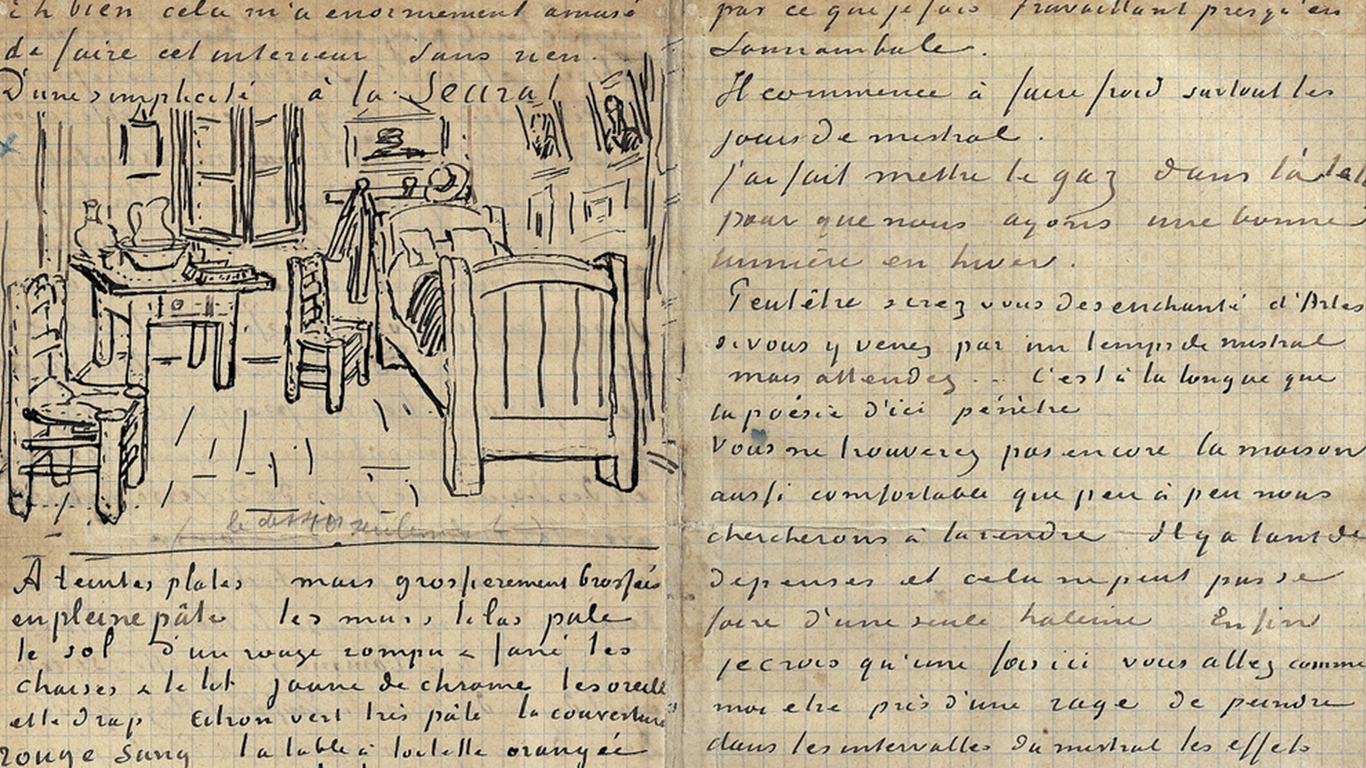 Eh bien cela m'a enormement amusé
de faire cet interieur sans rien.
D'une simplicité à la Seurat
le dessin seulement
A teintes plates mais grossierement brossées
en pleine pâte les murs lilas pale
le sol d'un rouge rompu & fané les
chaises & le lit jaune de chrome les oreill
et le drap citron vert très pâle la couverture
rouge sang la table à toilette orangée
par ce que je fais travaillant presqu'en
somnambule.
Il commence à faire froid surtout les
jours de mistral.
j'ai fait mettre le gaz dans l'atel
pour que nous ayons une bonne
lumière en hiver.
Peutêtre serez vous desenchanté d'Arles
si vous y venez par un temps de mistral
mais attendez... C'est à la longue que
la poésie d'ici pénètre
Vous ne trouverez pas encore la maison
aussi comfortable que peu à peu nous
chercherons à la rendre Il y a tant de
depenses et cela ne peut pas se
faire d'une seule haleine Enfin
je crois qu'une fois ici vous allez comme
moi etre pris d'une rage de peindre
dans les intervalles du mistral les effets